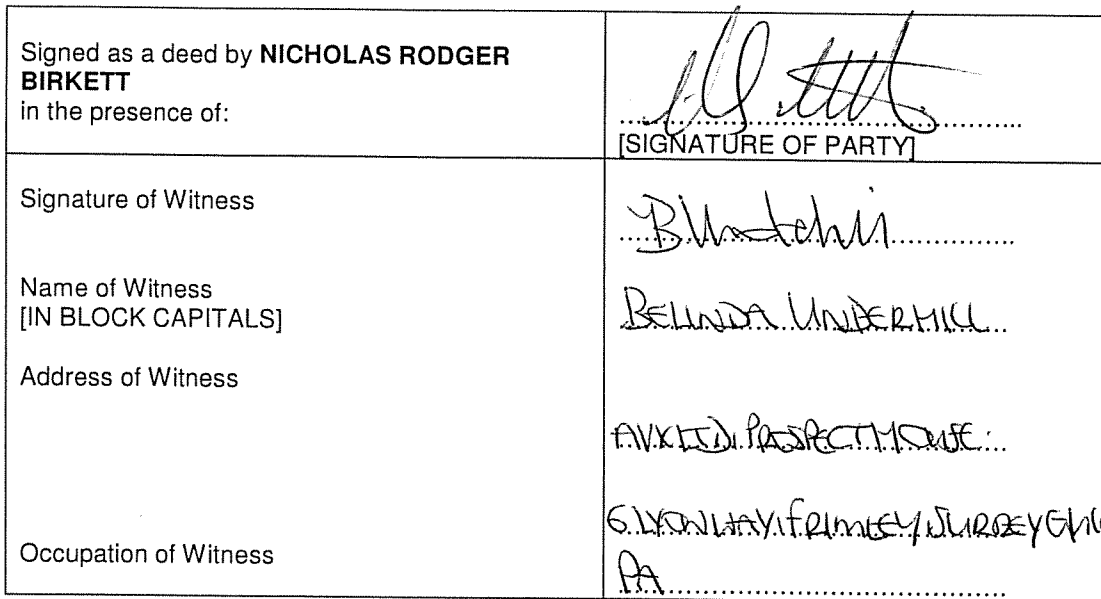 Signed as a deed by NICHOLAS RODGER
BIRKETT
in the presence of:
[SIGNATURE OF PARTY]
Signature of Witness
Name of Witness
[IN BLOCK CAPITALS]
BELINDA UNDERHILL
Address of Witness
PROSPECT HOUSE
6 LYON WAY, FRIMLEY, SURREY
Occupation of Witness
PA